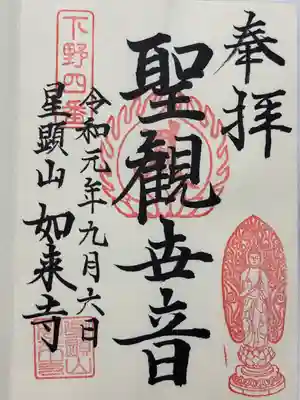 奉拝
聖観世音
令和元年九月六日
下野四番
星顕山如来寺